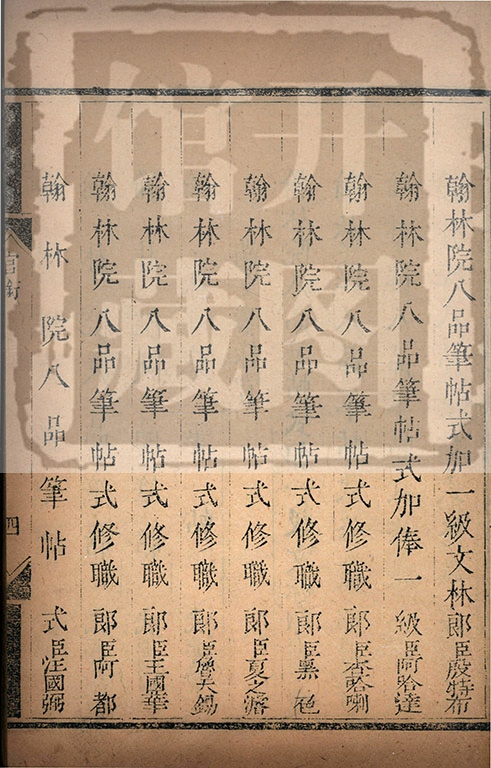 翰林院八品筆帖式加一級文林郎臣殷特布
翰林院八品筆帖式加俸一級臣阿哈達
翰林院八品筆帖式修職郎臣查哈喇
翰林院八品筆帖式修職郎臣黑色
翰林院八品筆帖式修職郎臣夏之
翰林院八品筆帖式修職郎臣天錫
翰林院八品筆帖式修職郎臣王國華
翰林院八品筆帖式修職郎臣阿都
翰林院八品筆帖式臣汪國弼
官銜
四
开图馆藏